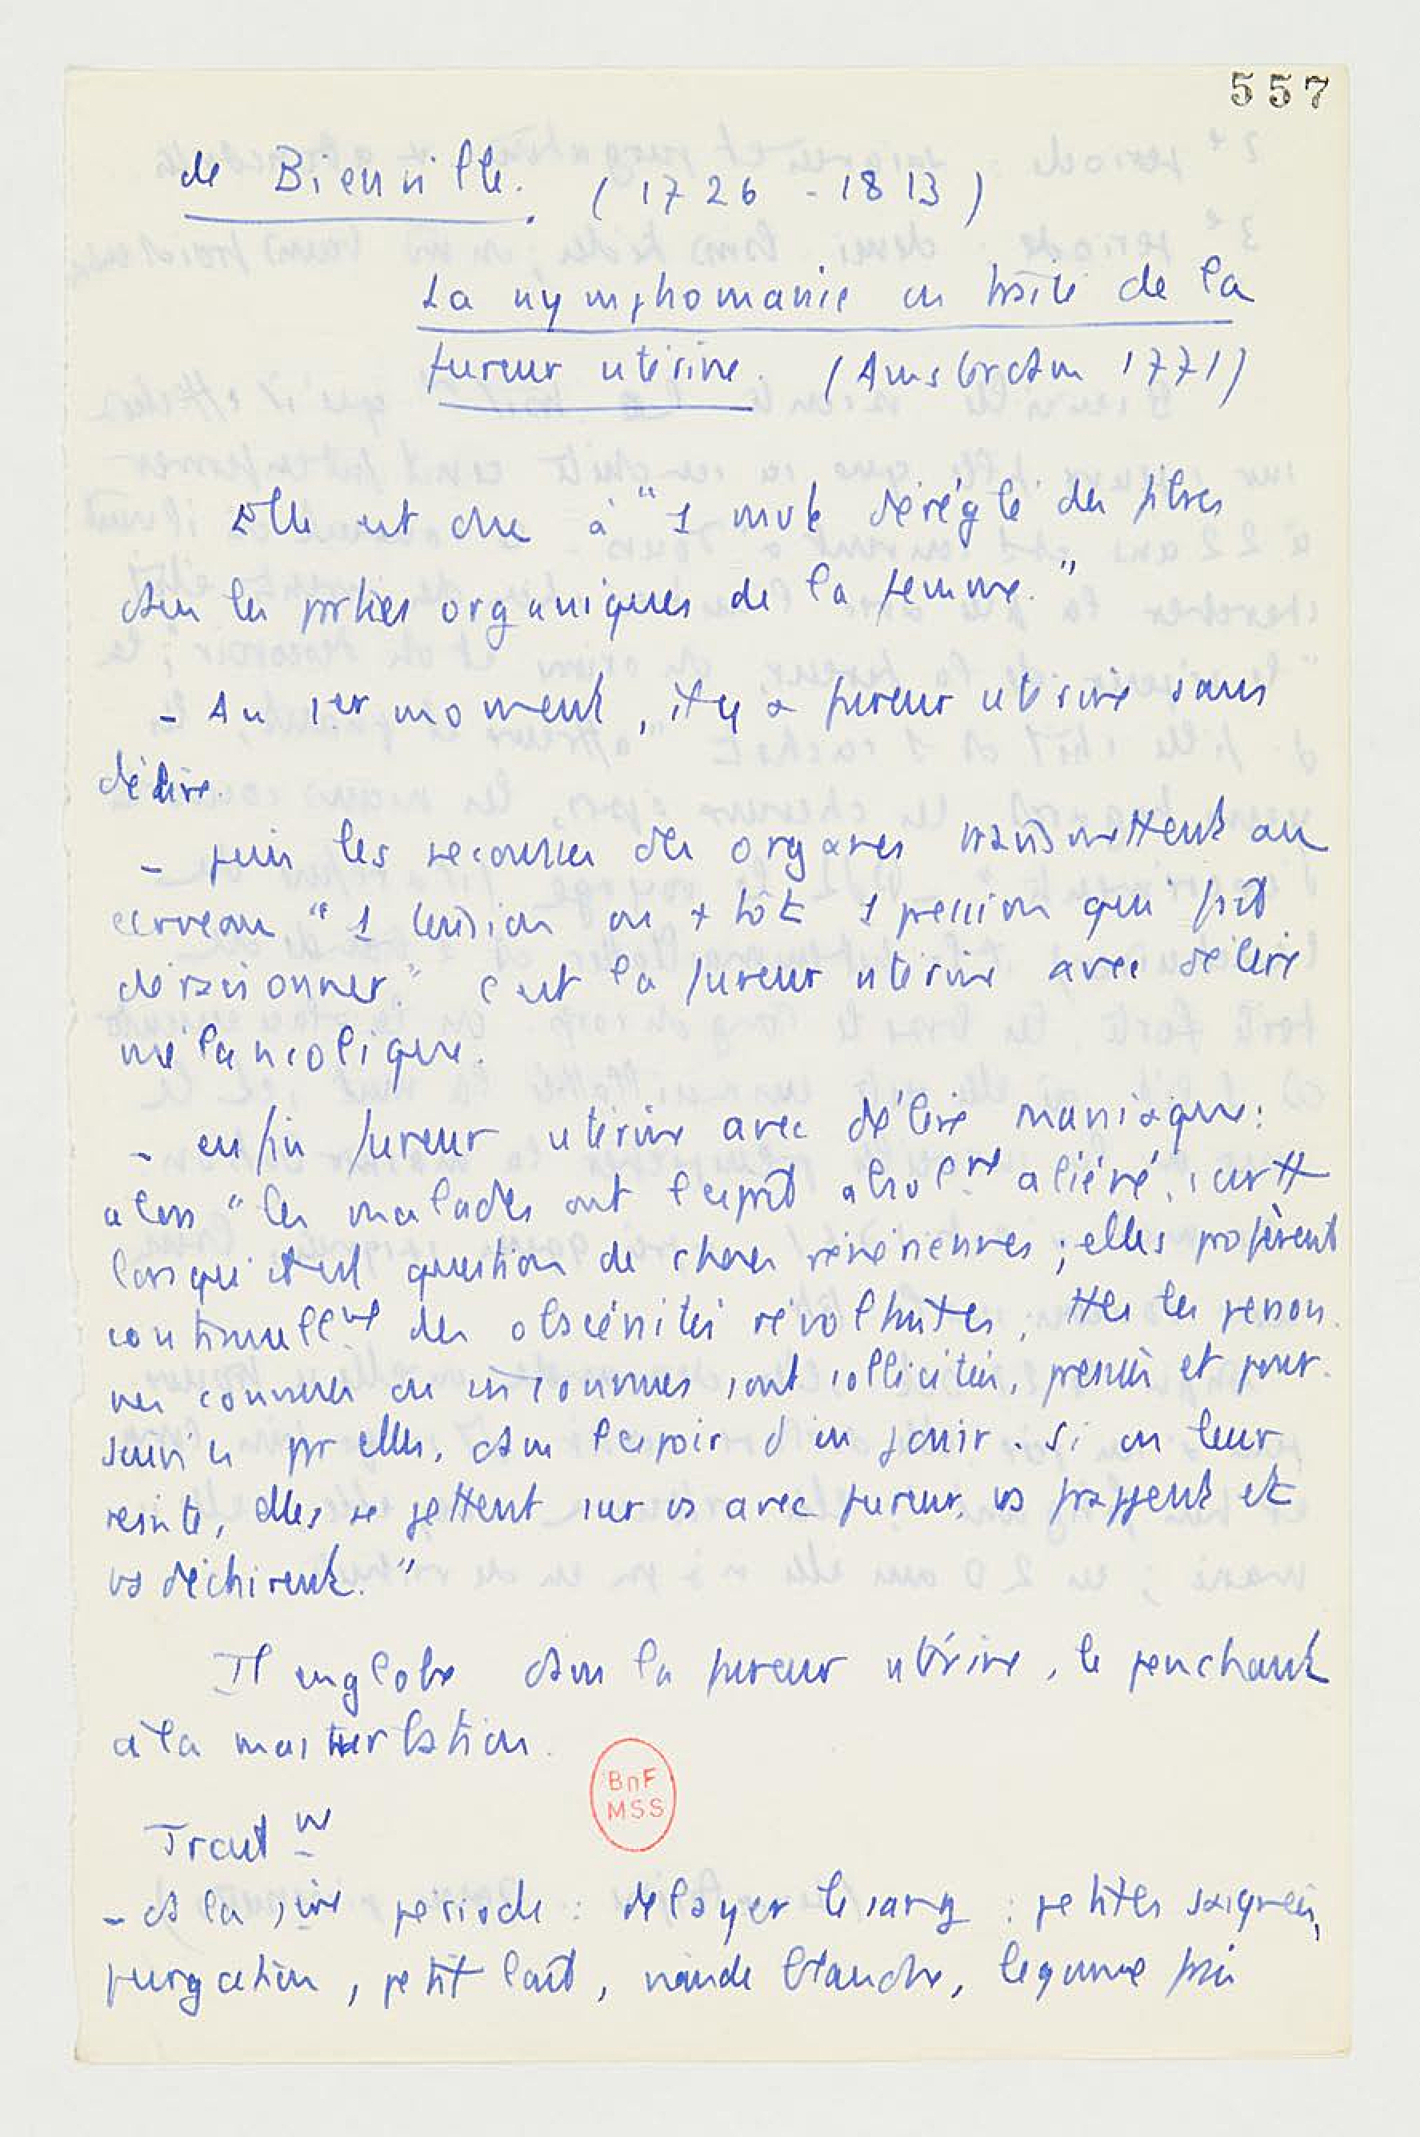 557
de Bienville. (1726 - 1813)
La nymphomanie ou traité de la
fureur utérine. (Amsterdam 1771)
Elle est due à "1 mvt déréglé des fibres
dans les parties organiques de la femme."
- Au 1er moment, il y a fureur utérine sans
délire.
- puis les secousses des organes transmettent au
cerveau "1 tension ou + tôt 1 pression qui fait
déraisonner." C'est la fureur utérine avec délire
mélancolique.
- enfin fureur utérine avec délire maniaque:
alors "les malades ont l'esprit absolnt aliéné, surtt
lorsqu'il est question de choses vénériennes ; elles profèrent
continuellnt des obscénités révoltantes, ttes les person-
nes connues ou inconnues sont sollicitées, pressées et pour-
suivies pr elles, dans l'espoir d'en jouir. Si on leur
résiste, elles se jettent sur vs avec fureur, vs frappent et
vs déchirent."
Il englobe dans la fureur utérine, le penchant
à la masturbation.
BnF
MSS
Traitnt
- ds la 1ère période : délayer le sang : petites saignées,
purgation, petit lait, viande blanche, légume frais